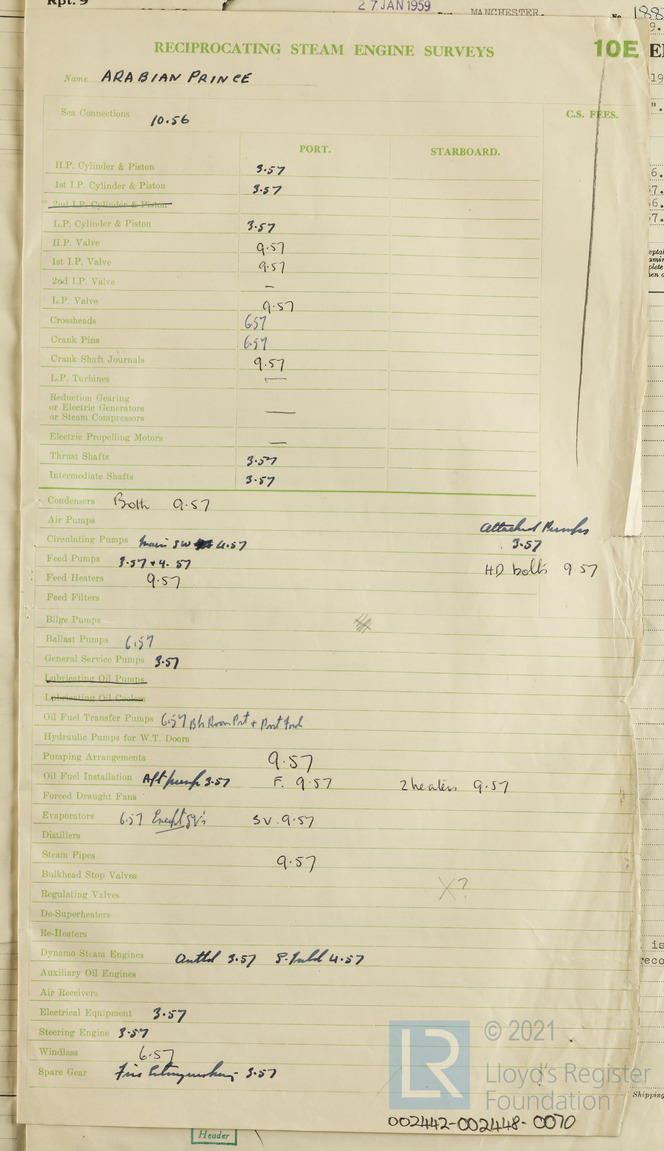 Rpt. 9
27 JAN 1959
MANCHESTER.
No 188
RECIPROCATING STEAM ENGINE SURVEYS
10E
Name ARABIAN PRINCE
Sea Connections 10.56
C.S. FEES.
PORT. STARBOARD.
H.P. Cylinder & Piston 3.57
1st I.P. Cylinder & Piston 3.57
2nd I.P. Cylinder & Piston
L.P. Cylinder & Piston 3.57
H.P. Valve 9.57
1st I.P. Valve 9.57
2nd I.P. Valve —
L.P. Valve 9.57
Crossheads 657
Crank Pins 6.57
Crank Shaft Journals 9.57
L.P. Turbines —
Reduction Gearing
or Electric Generators
or Steam Compressors —
Electric Propelling Motors —
Thrust Shafts 3.57
Intermediate Shafts 3.57
Condensers Both 9.57
Air Pumps Attached Pumps
Circulating Pumps Main SW 4.57 3.57
Feed Pumps 3.57 + 4.57 HD bolts 9 57
Feed Heaters 9.57
Feed Filters
Bilge Pumps
Ballast Pumps 6.57
General Service Pumps 3.57
Lubricating Oil Pumps
Lubricating Oil Coolers
Oil Fuel Transfer Pumps 6.57 Port
Hydraulic Pumps for W.T. Doors
Pumping Arrangements 9.57
Oil Fuel Installation Aft pump 3.57 F. 9.57 2 heaters 9.57
Forced Draught Fans
Evaporators 6.57 Except SV's SV. 9.57
Distillers
Steam Pipes 9.57
Bulkhead Stop Valves
Regulating Valves X?
De-Superheaters
Re-Heaters
Dynamo Steam Engines 3.57 4.57
Auxiliary Oil Engines
Air Receivers
Electrical Equipment 3.57
Steering Engine 3.57
Windlass 6.57
Spare Gear Fire Extinguishing 3.57
LR © 2021
Lloyd's Register
Foundation
002442-002448-0070
Header
Shipping